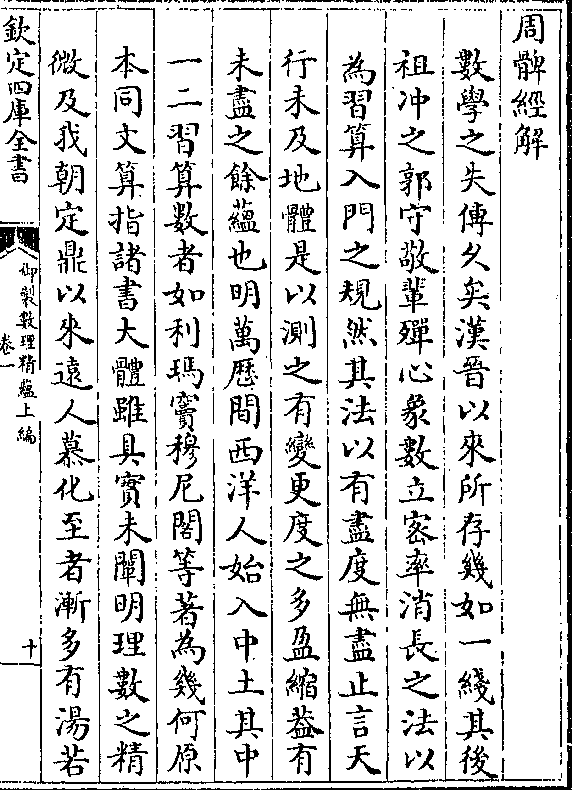 周髀經解
數學之失傳久矣漢晉以來所存幾如一綫其後
祖冲之郭守敬輩殫心象數立密率消長之法以
為習算入門之規然其法以有盡度無盡止言天
行未及地體是以測之有變更度之多盈縮葢有
未盡之餘蘊也明萬歷間西洋人始入中土其中
一二習算數者如利瑪竇穆尼閣等著為幾何原
本同文算指諸書大體雖具實未闡明理數之精
微及我朝定鼎以來遠人慕化至者漸多有湯若
欽定四庫全書
御製數理精蘊上編
卷一
十